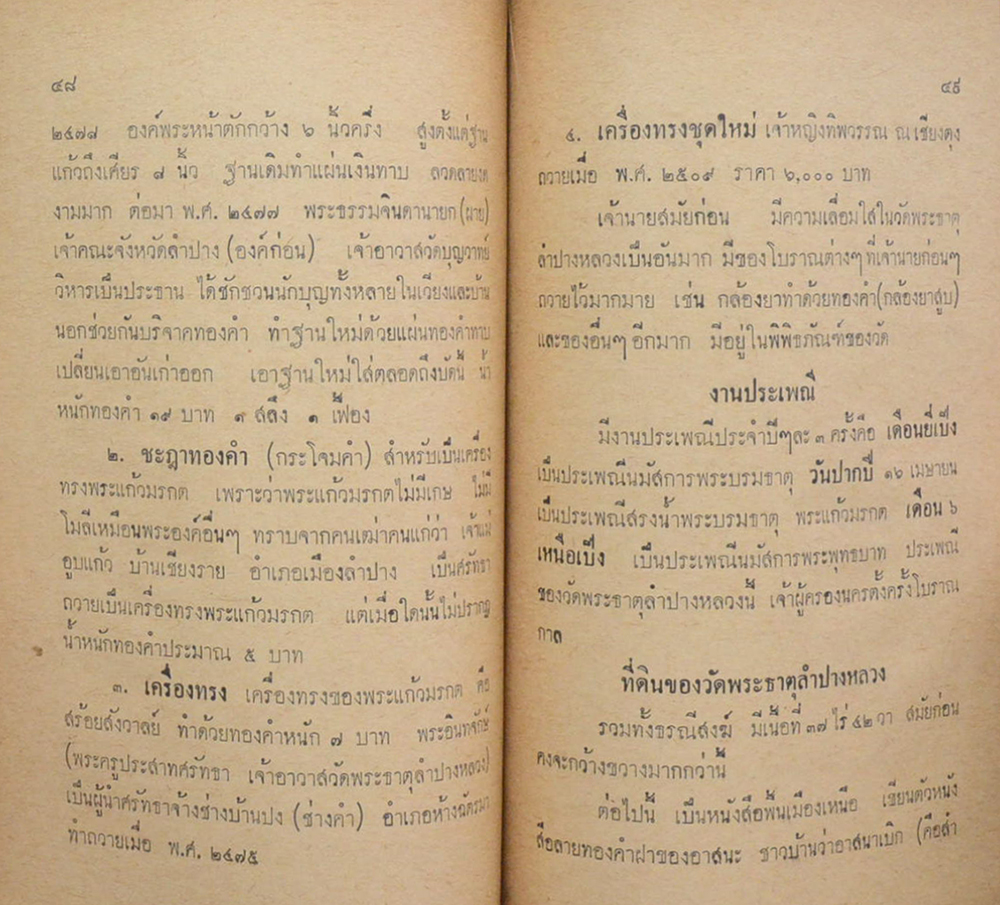 ๔๘
๒๔๗๗ องค์พระหน้าตักกว้าง ๖ นิ้วครึ่ง สูงตั้งแต่ฐาน
แก้วถึงเศียร ๘ นิ้ว ฐานเดิมทำแผ่นเงินทาบ ลวดลายงด
งามมาก ต่อมา พ.ศ. ๒๔๗๗ พระธรรมจินดานายก (ฝาย)
เจ้าคณะจังหวัดลำปาง (องค์ก่อน) เจ้าอาวาสวัดบุญวาทย์
วิหารเป็นประธาน ได้ชักชวนนักบุญทั้งหลายในเวียงและบ้าน
นอกช่วยกันบริจาคทองคำ ทำฐานใหม่ด้วยแผ่นทองคำทาบ
เปลี่ยนเอาอันเก่าออก เอาฐานใหม่ใส่ตลอดถึงบัดนี้ น้ำ
หนักทองคำ ๑๙ บาท ๑ สลึง ๑ เฟื้อง
๒. ชะฎาทองคำ (กระโจมคำ) สำหรับเป็นเครื่อง
ทรงพระแก้วมรกต เพราะว่าพระแก้วมรกตไม่มีเกษ ไม่มี
โมลีเหมือนพระองค์อื่นๆ ทราบจากคนเฒ่าคนแก่ว่า เจ้าแม่
อูบแก้ว บ้านเชียงราย อำเภอเมืองลำปาง เป็นศรัทธา
ถวายเป็นเครื่องทรงพระแก้วมรกต แต่เมื่อใดนั้นไม่ปรากฏ
น้ำหนักทองคำประมาณ ๕ บาท
๓. เครื่องทรง เครื่องทรงของพระแก้วมรกต คือ
สร้อยสังวาลย์ ทำด้วยทองคำหนัก ๗ บาท พระอินทจักษ์
(พระครูประสาทศรัทธา เจ้าอาวาสวัดพระธาตุลำปางหลวง)
เป็นผู้นำศรัทธาจ้างช่างบ้านปง (ช่างคำ) อำเภอห้างฉัตรมา
ทำถวายเมื่อ พ.ศ. ๒๔๗๕
๔๙
๔. เครื่องทรงชุดใหม่ เจ้าหญิงทิพวรรณ ณ เชียงตุง
ถวายเมื่อ พ.ศ. ๒๕๐๙ ราคา ๖,๐๐๐ บาท
เจ้านายสมัยก่อน มีความเลื่อมใสในวัดพระธาตุ
ลำปางหลวงเป็นอันมาก มีของโบราณต่างๆ ที่เจ้านายก่อนๆ
ถวายไว้มากมาย เช่น กล้องยาทำด้วยทองคำ(กล้องยาสูบ)
และของอื่นๆ อีกมาก มีอยู่ในพิพิธภัณฑ์ของวัด
งานประเพณี
มีงานประเพณีประจำปีๆละ ๓ ครั้งคือ เดือนยี่เป็ง
เป็นประเพณีนมัสการพระบรมธาตุ วันปากปี ๑๖ เมษายน
เป็นประเพณีสรงน้ำพระบรมธาตุ พระแก้วมรกต เดือน ๖
เหนือเป็ง เป็นประเพณีนมัสการพระพุทธบาท ประเพณี
ของวัดพระธาตุลำปางหลวงนี้ เจ้าผู้ครองนครตั้งครั้งโบราณ
กาล
ที่ดินของวัดพระธาตุลำปางหลวง
รวมทั้งธรณีสงฆ์ มีเนื้อที่ ๓๗ ไร่ ๕๒ วา สมัยก่อน
คงจะกว้างขวางมากกว่านี้
ต่อไปนี้ เป็นหนังสือพื้นเมืองเหนือ เขียนตัวหนัง
สือลายทองคำฝาของอาสนะ ชาวบ้านว่าอาสนาเบิก (คือสำ